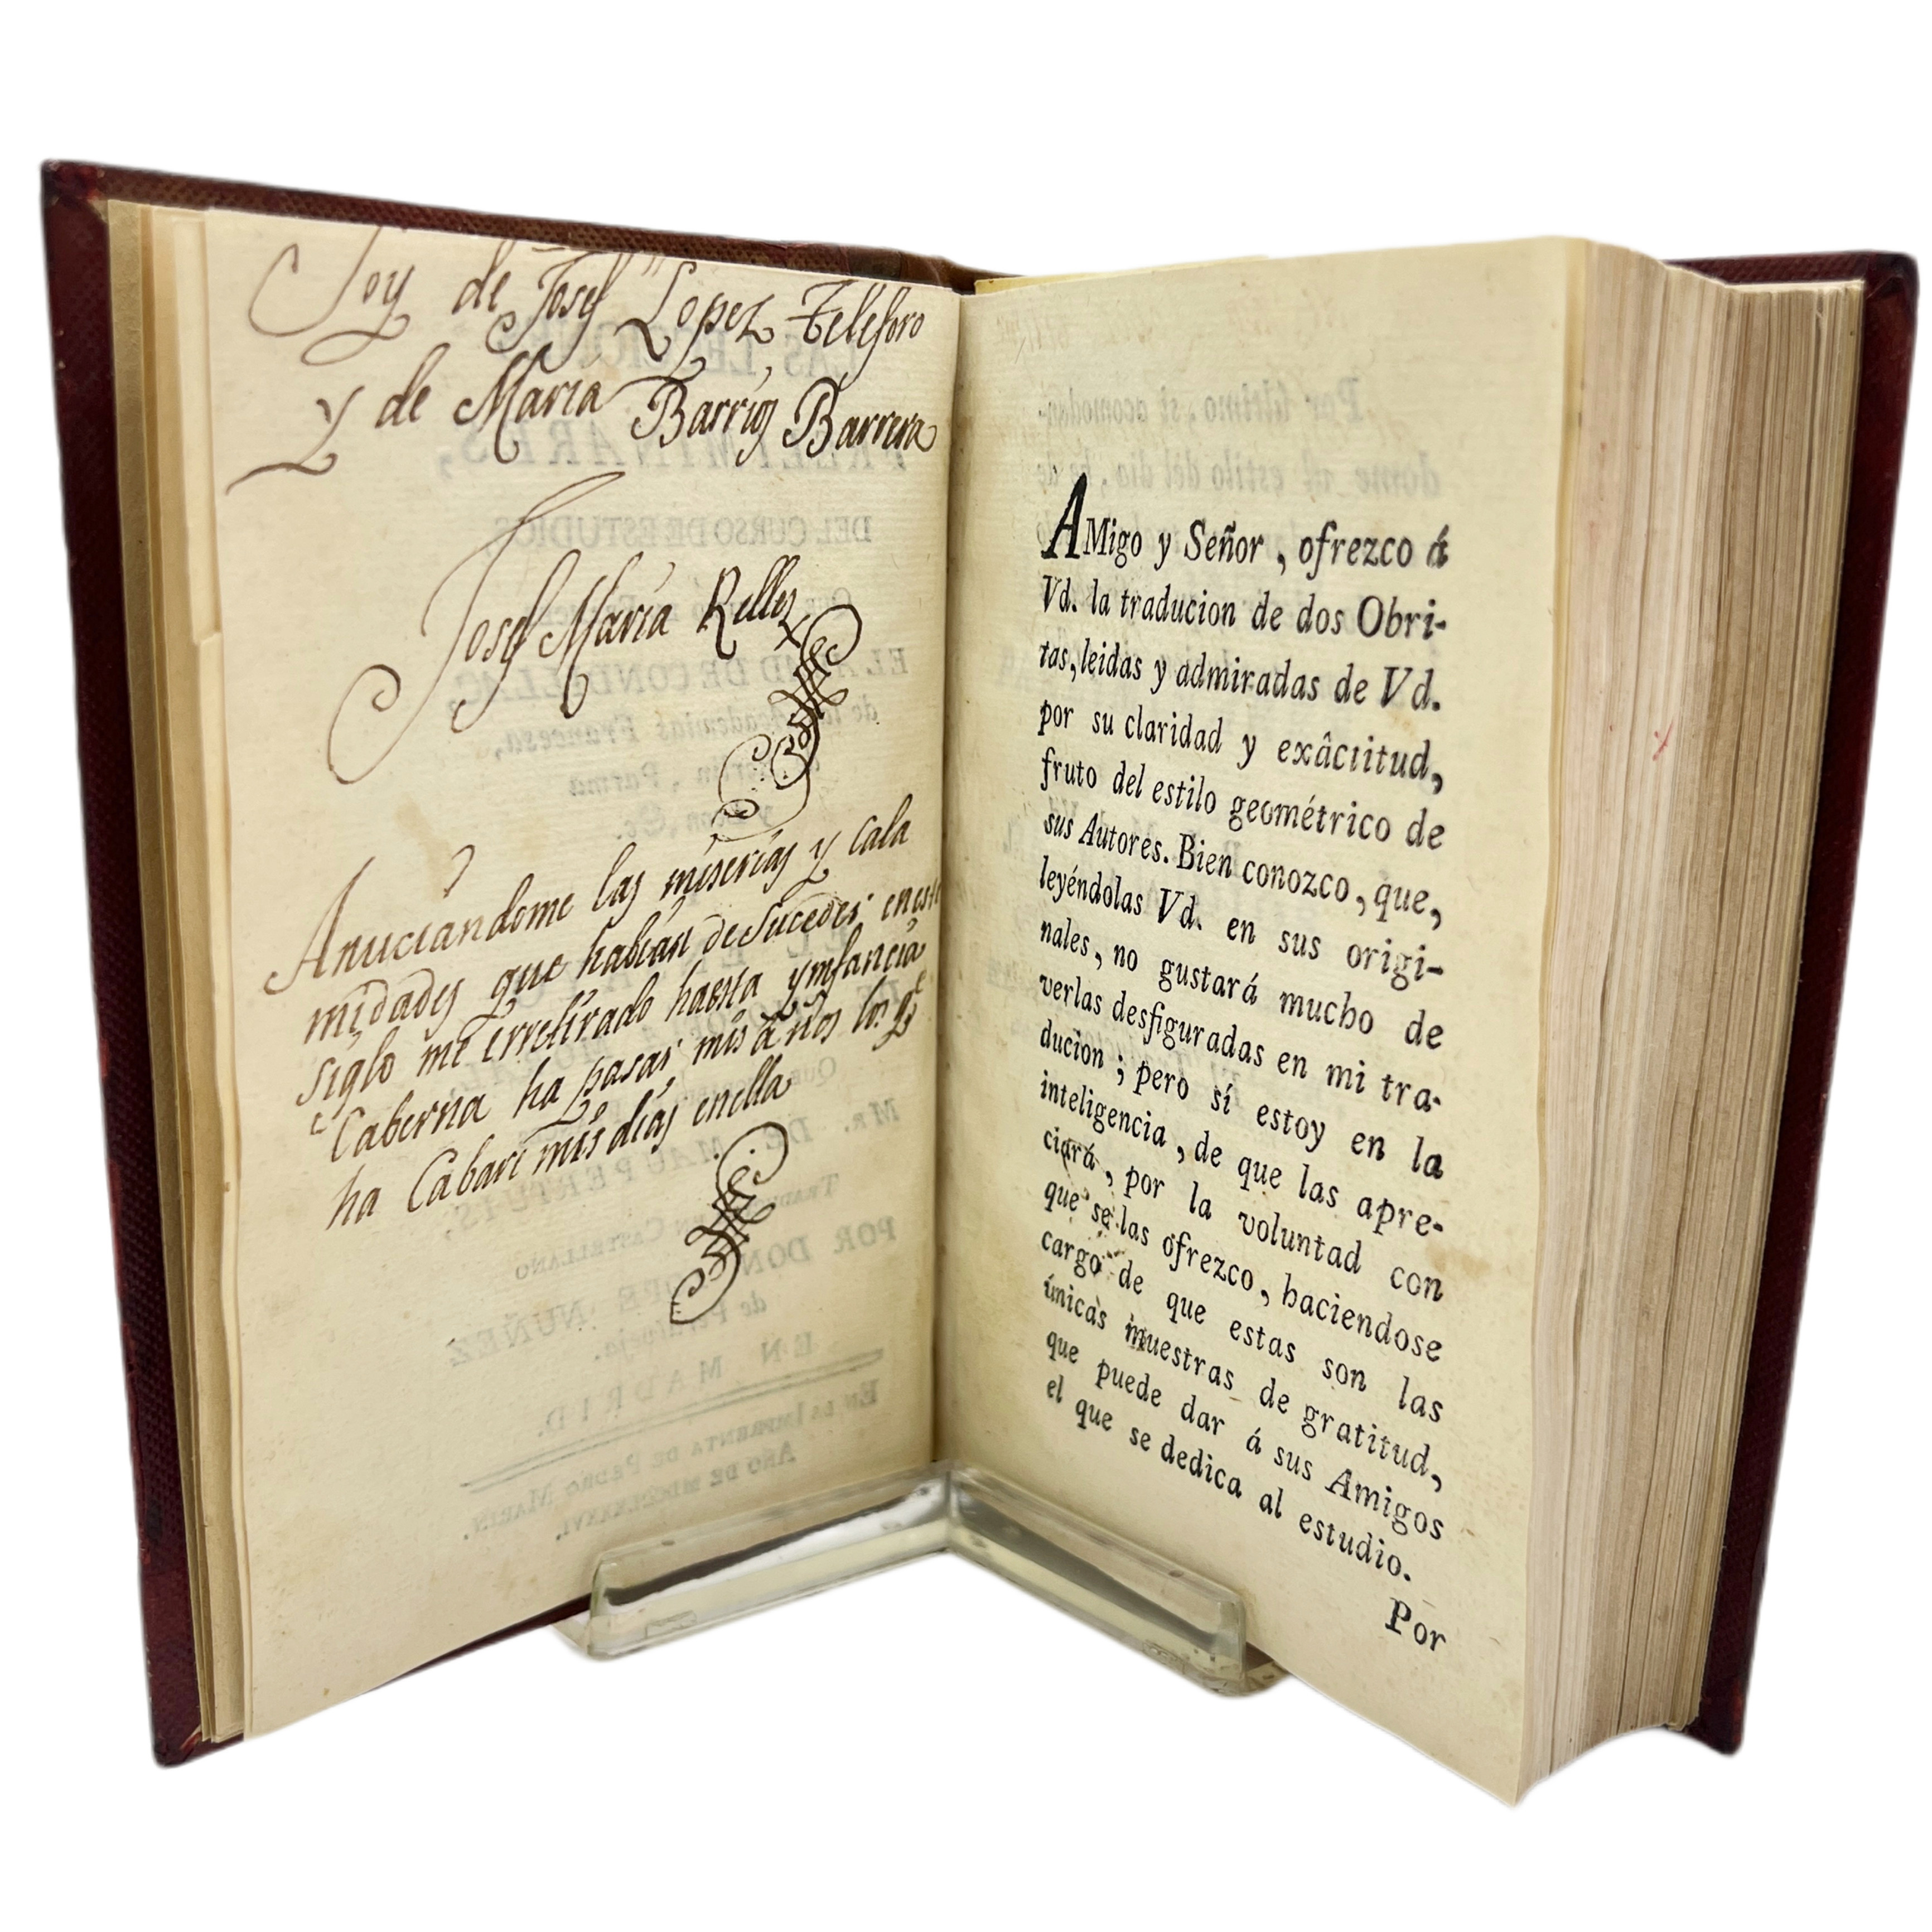 Soy de Josef Lopez, Telesforo
y de María Barrios Barrera
Josef María Relles
Anuciandome las miserias y cala
midades que habian de Suceder en este
siglo me erretirado hasta
Caberna ha pasar mis años los qe
ha Cabare mis dias enella
AMigo y Señor, ofrezco á
Vd. la traducion de dos Obri-
tas, leidas y admiradas de Vd.
por su claridad y exâctitud,
fruto del estilo geométrico de
sus Autores. Bien conozco, que,
leyéndolas Vd. en sus origi-
nales, no gustará mucho de
verlas desfiguradas en mi tra-
ducion; pero sí estoy en la
inteligencia, de que las apre-
ciará, por la voluntad con
que se las ofrezco, haciendose
cargo de que estas son las
únicas muestras de gratitud,
que puede dar á sus Amigos
el que se dedica al estudio.
Por